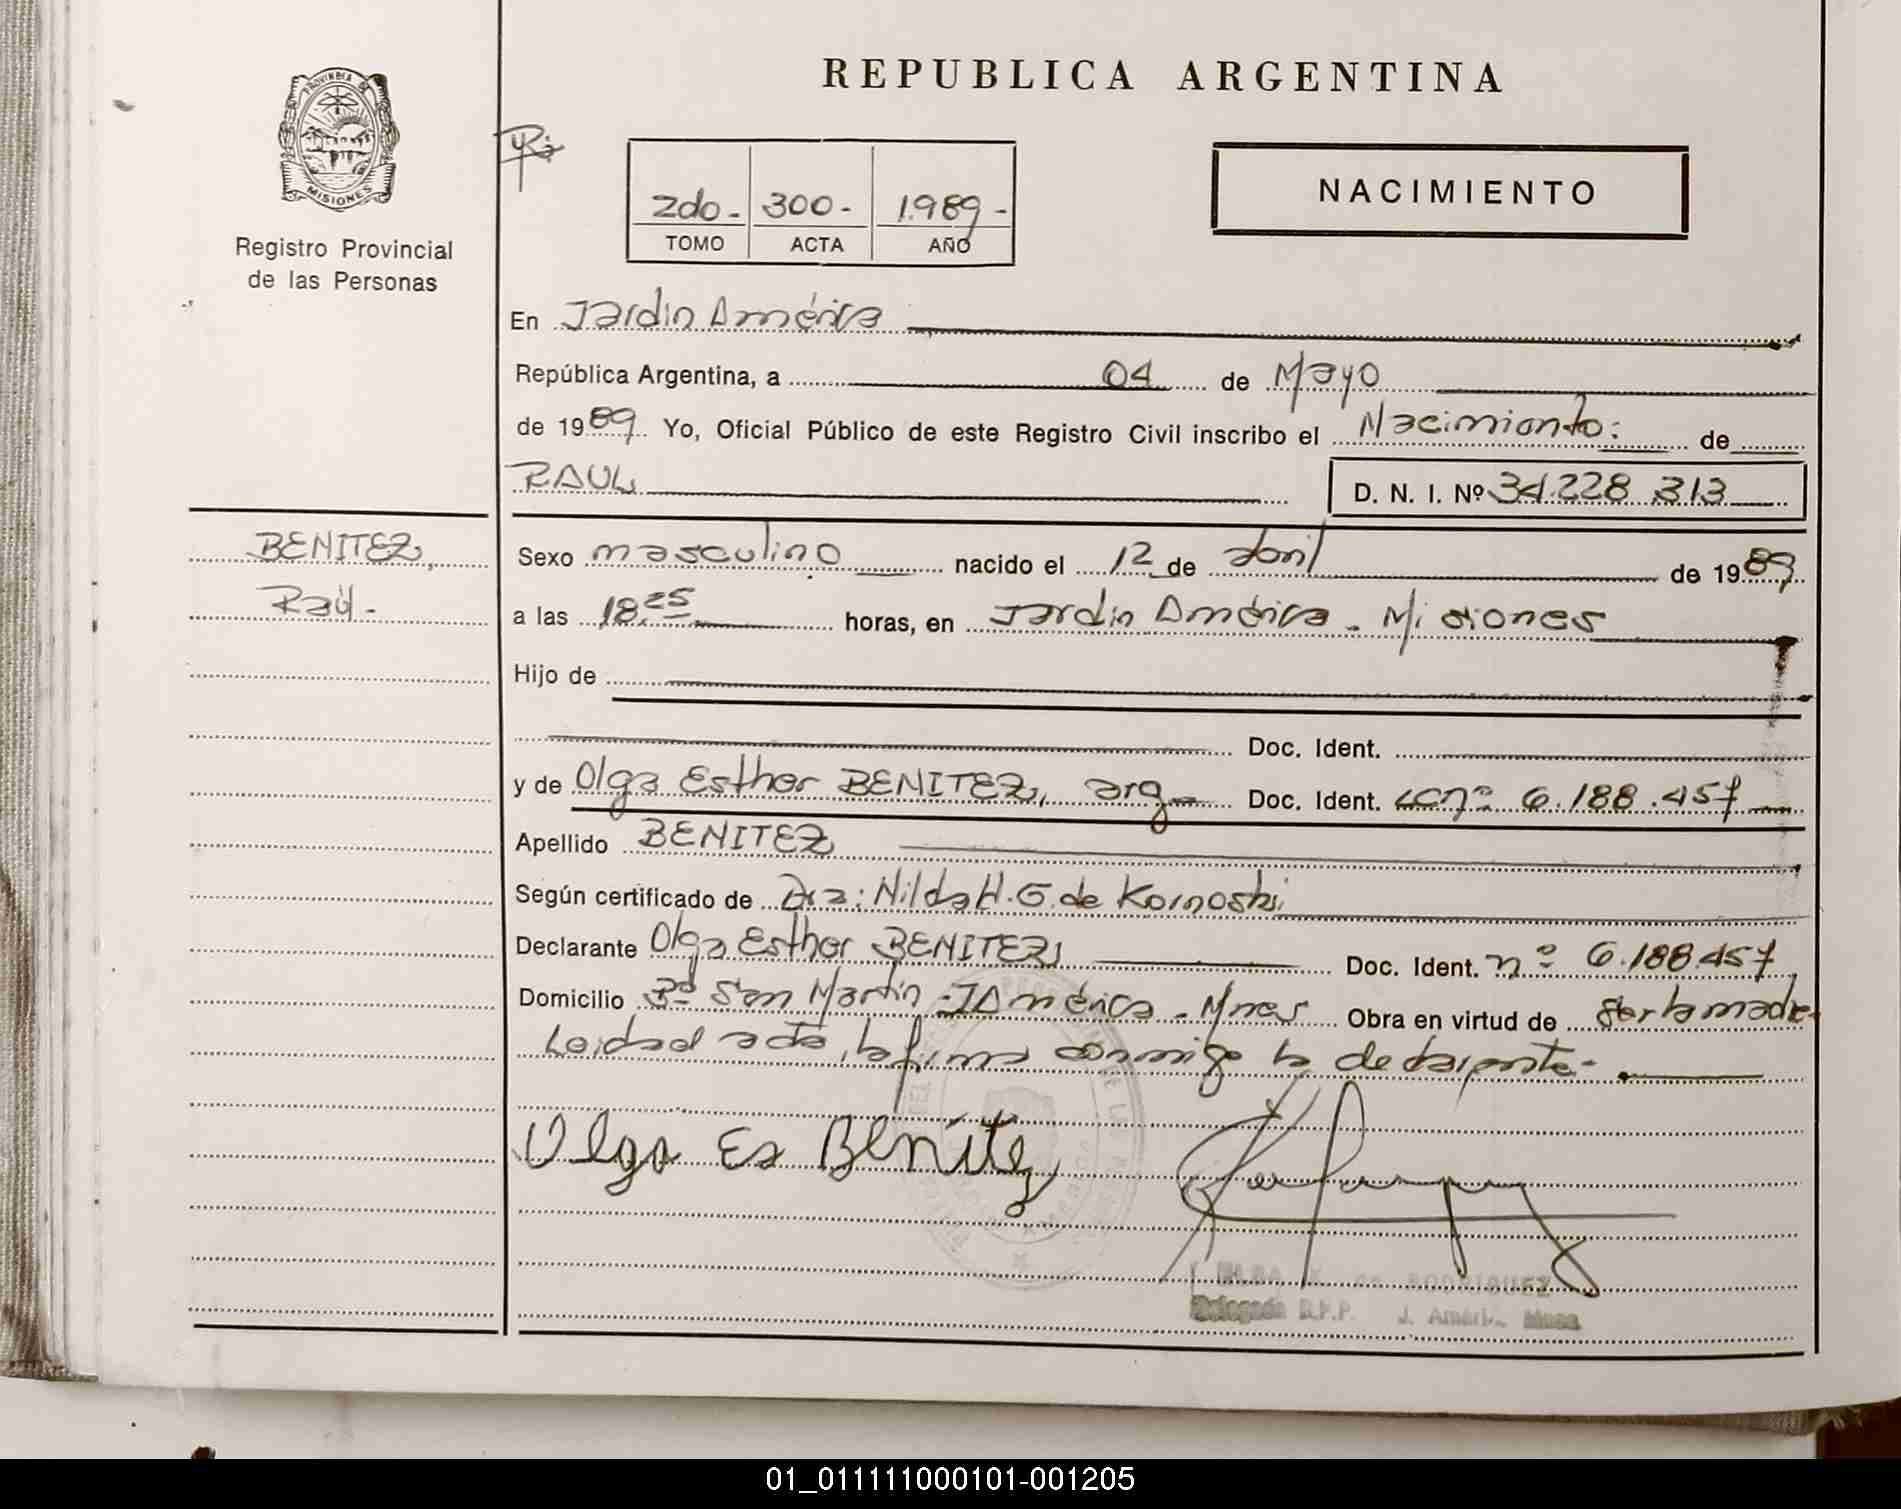 REPUBLICA ARGENTINA
PROVINCIA DE
MISIONES
Registro Provincial
de las Personas
2do - 300 - 1.989 -
TOMO ACTA AÑO
NACIMIENTO
En Jardin América
República Argentina, a 04 de Mayo
de 1989 Yo, Oficial Público de este Registro Civil inscribo el Nacimiento: de
RAUL D. N. I. Nº 34.228 313
BENITEZ,
Raúl -
Sexo masculino nacido el 12 de abril de 1989
a las 18.25 horas, en Jardin América - Misiones
Hijo de
Doc. Ident.
y de Olga Esther BENITEZ, arg Doc. Ident. LC nº 6.188.457
Apellido BENITEZ
Según certificado de Dra: Nilda H. G. de Kornoski
Declarante Olga Esther BENITEZ Doc. Ident. nº 6.188.457
Domicilio Bº San Martin - J América - Mnes Obra en virtud de ser la madre -
Leida el acta, la firma conmigo la declarante -
Olga Es Benítez
de RODRIGUEZ
Delegada R.P.P. J. Améri. Mnes
01_011111000101-001205